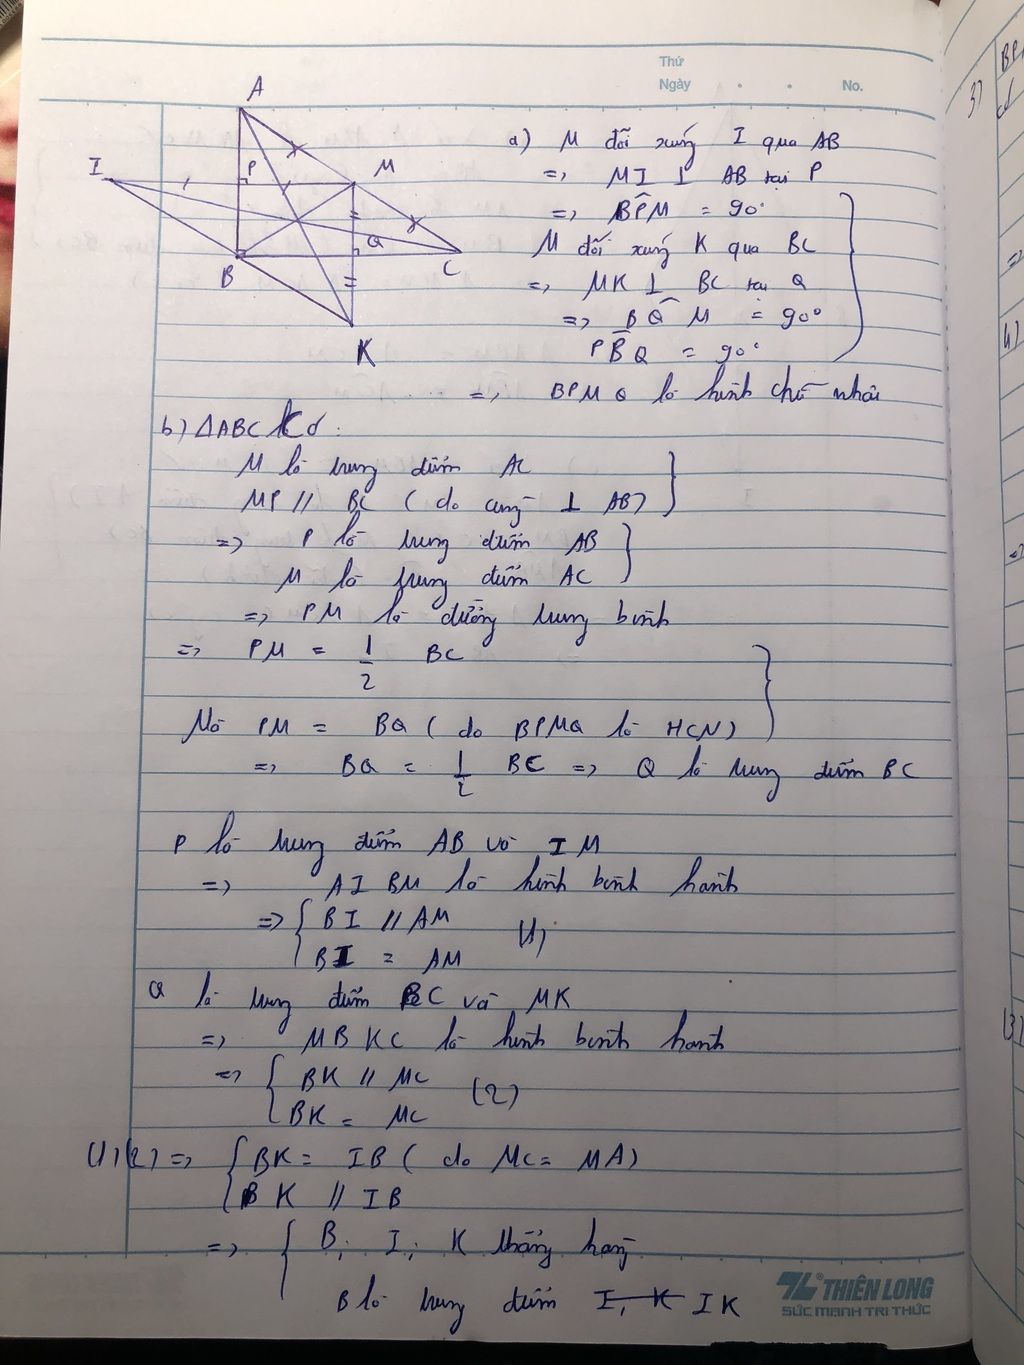 Thứ
Ngày . . No.
A
I
P
M
Q
B
C
K
a) M đối xứng I qua AB
=> MI ⊥ AB tại P
=> BPM = 90°
M đối xứng K qua BC
=> MK ⊥ BC tại Q
=> BQM = 90°
PBQ = 90°
=> BPMQ là hình chữ nhật
b) ΔABC có:
M là trung điểm AC
MP // BC (do cùng ⊥ AB)
=> P là trung điểm AB
M là trung điểm AC
=> PM là đường trung bình
=> PM = 1/2 BC
Mà PM = BQ (do BPMQ là HCN)
=> BQ = 1/2 BC => Q là trung điểm BC
P là trung điểm AB và IM
=> AIBM là hình bình hành
=> { BI // AM
BI = AM (1)
Q là trung điểm BC và MK
=> MBKC là hình bình hành
=> { BK // MC
BK = MC (2)
(1)(2) => { BK = IB (do MC = MA)
BK // IB
=> { B; I; K thẳng hàng
B là trung điểm I, K IK
THIÊN LONG
SỨC MẠNH TRI THỨC
3)
BPM
4)
=>